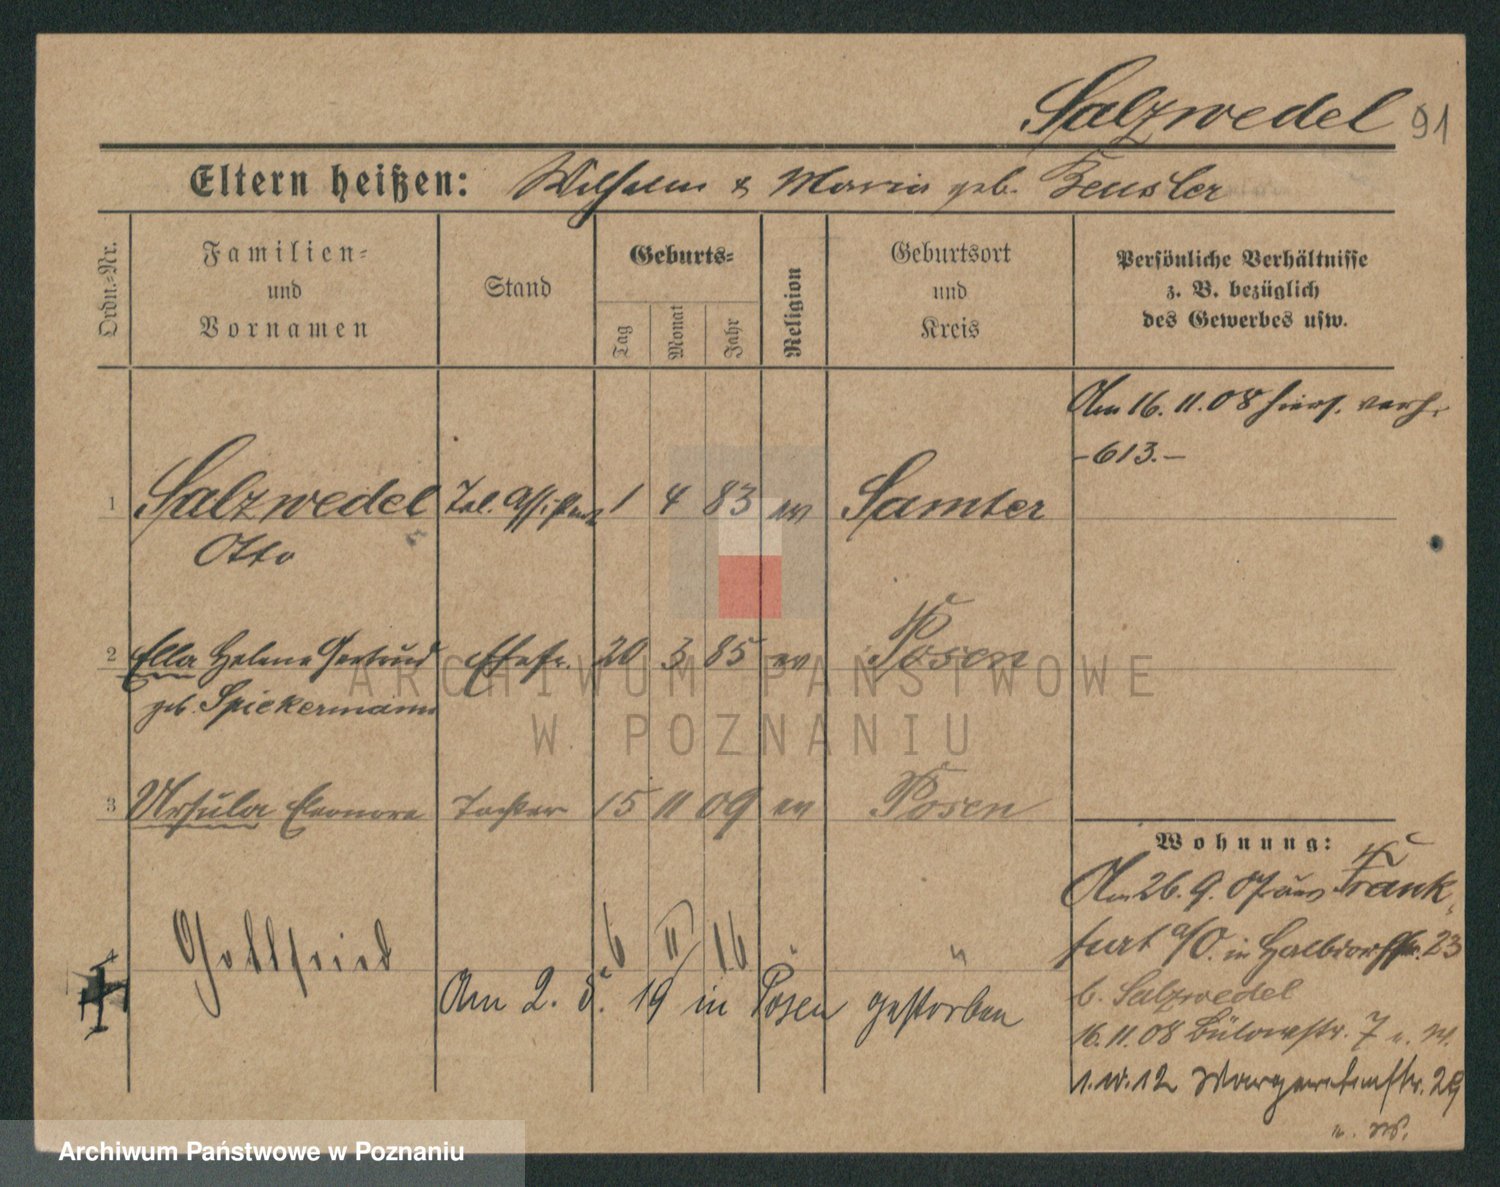 Salzwedel 91
Eltern heißen: Wilhelm & Maria geb. Beusler
Ordn.-Nr.
Familien-
und
Vornamen
Stand
Geburts-
Tag
Monat
Jahr
Religion
Geburtsort
und
Kreis
Persönliche Verhältnisse
z. B. bezüglich
des Gewerbes usw.
Am 16. 11. 08 hiers. verh.
-613.-
1 Salzwedel Tel. Assistent 1 4 83 ev Samter
Otto
2 Ella Helene Gertrud Ehefr. 20 3 85 ev Posen
geb. Spiekermann
3 Ursula Eleonore Tochter 15 11 09 ev Posen
Wohnung:
Am 26. 9. 07 aus Frank-
furt a/O. in Halbdorfstr. 23
b. Salzwedel
16. 11. 08 Bülowstr. 7 u. W.
1. IV. 12 Margaretenstr. 29
u. W.
4 Gottfried 6 II 16 "
Am 2. 5. 19 in Posen gestorben
ARCHIWUM PAŃSTWOWE
W POZNANIU
Archiwum Państwowe w Poznaniu